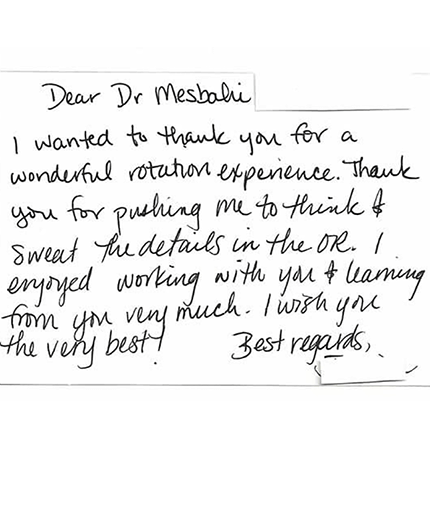 Dear Dr Mesbahi
I wanted to thank you for a
wonderful rotation experience. Thank
you for pushing me to think &
sweat the details in the OR. I
enjoyed working with you & learning
from you very much. I wish you
the very best!
Best regards,